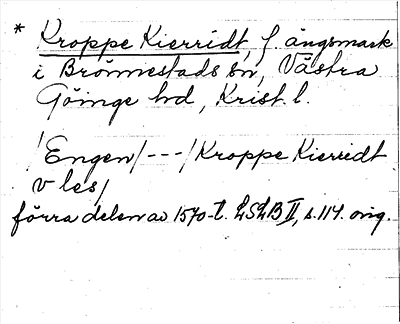 * Kroppe Kierridt, f. ängsmark
i Brönnestads sn, Västra
Göinge hd, Krist. l.
/Engen/---/Kroppe Kierridt
v les/
förra delen av 1570-t. LSLB II, s. 114. orig.